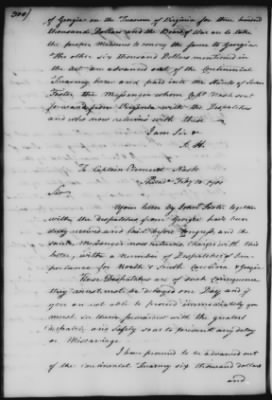 of Georgia on the Treasury of Virginia for three hundred
thousand Dollars and the Board of War are to take
the proper Measures to convey the same to Georgia
The other six thousand Dollars mentioned in
the Act are advanced out of the Continental
Treasury here and paid into the Hands of
Foster the Messenger whom Capt Nash sent
forward from Virginia with the Despatches
and who now returns with these
I am Sir &
S. H.
To Captain Clement Nash
Philad Feby 1781
Sir,
Yours sent by Foster together
with the despatches from Georgia have been
duly received and laid before Congress and the
same Messenger now returns charged with this
letter, with a number of Despatches of Im-
portance for North & South Carolina & Georgia
These Despatches are of such consequence
they must not be delayed one Day, and if
you are not able to proceed immediately you
must see them forwarded with the greatest
despatch and safety so as to prevent any delay
or Miscarriage.
I have procured to be advanced out
of the continental Treasury six thousand dollars
and